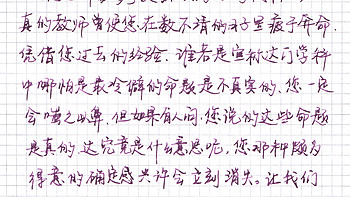 真的教师曾使您在数不清的日子里疲于奔命.
凭借您过去的经验.谁若是宣称这门学科
中哪怕是最冷僻的命题是不真实的,您一定
会嗤之以鼻.但如果有人问,您说的这些命题
是真的,这究竟是什么意思呢,您那种颇为
得意的确定感兴许会立刻消失.让我们